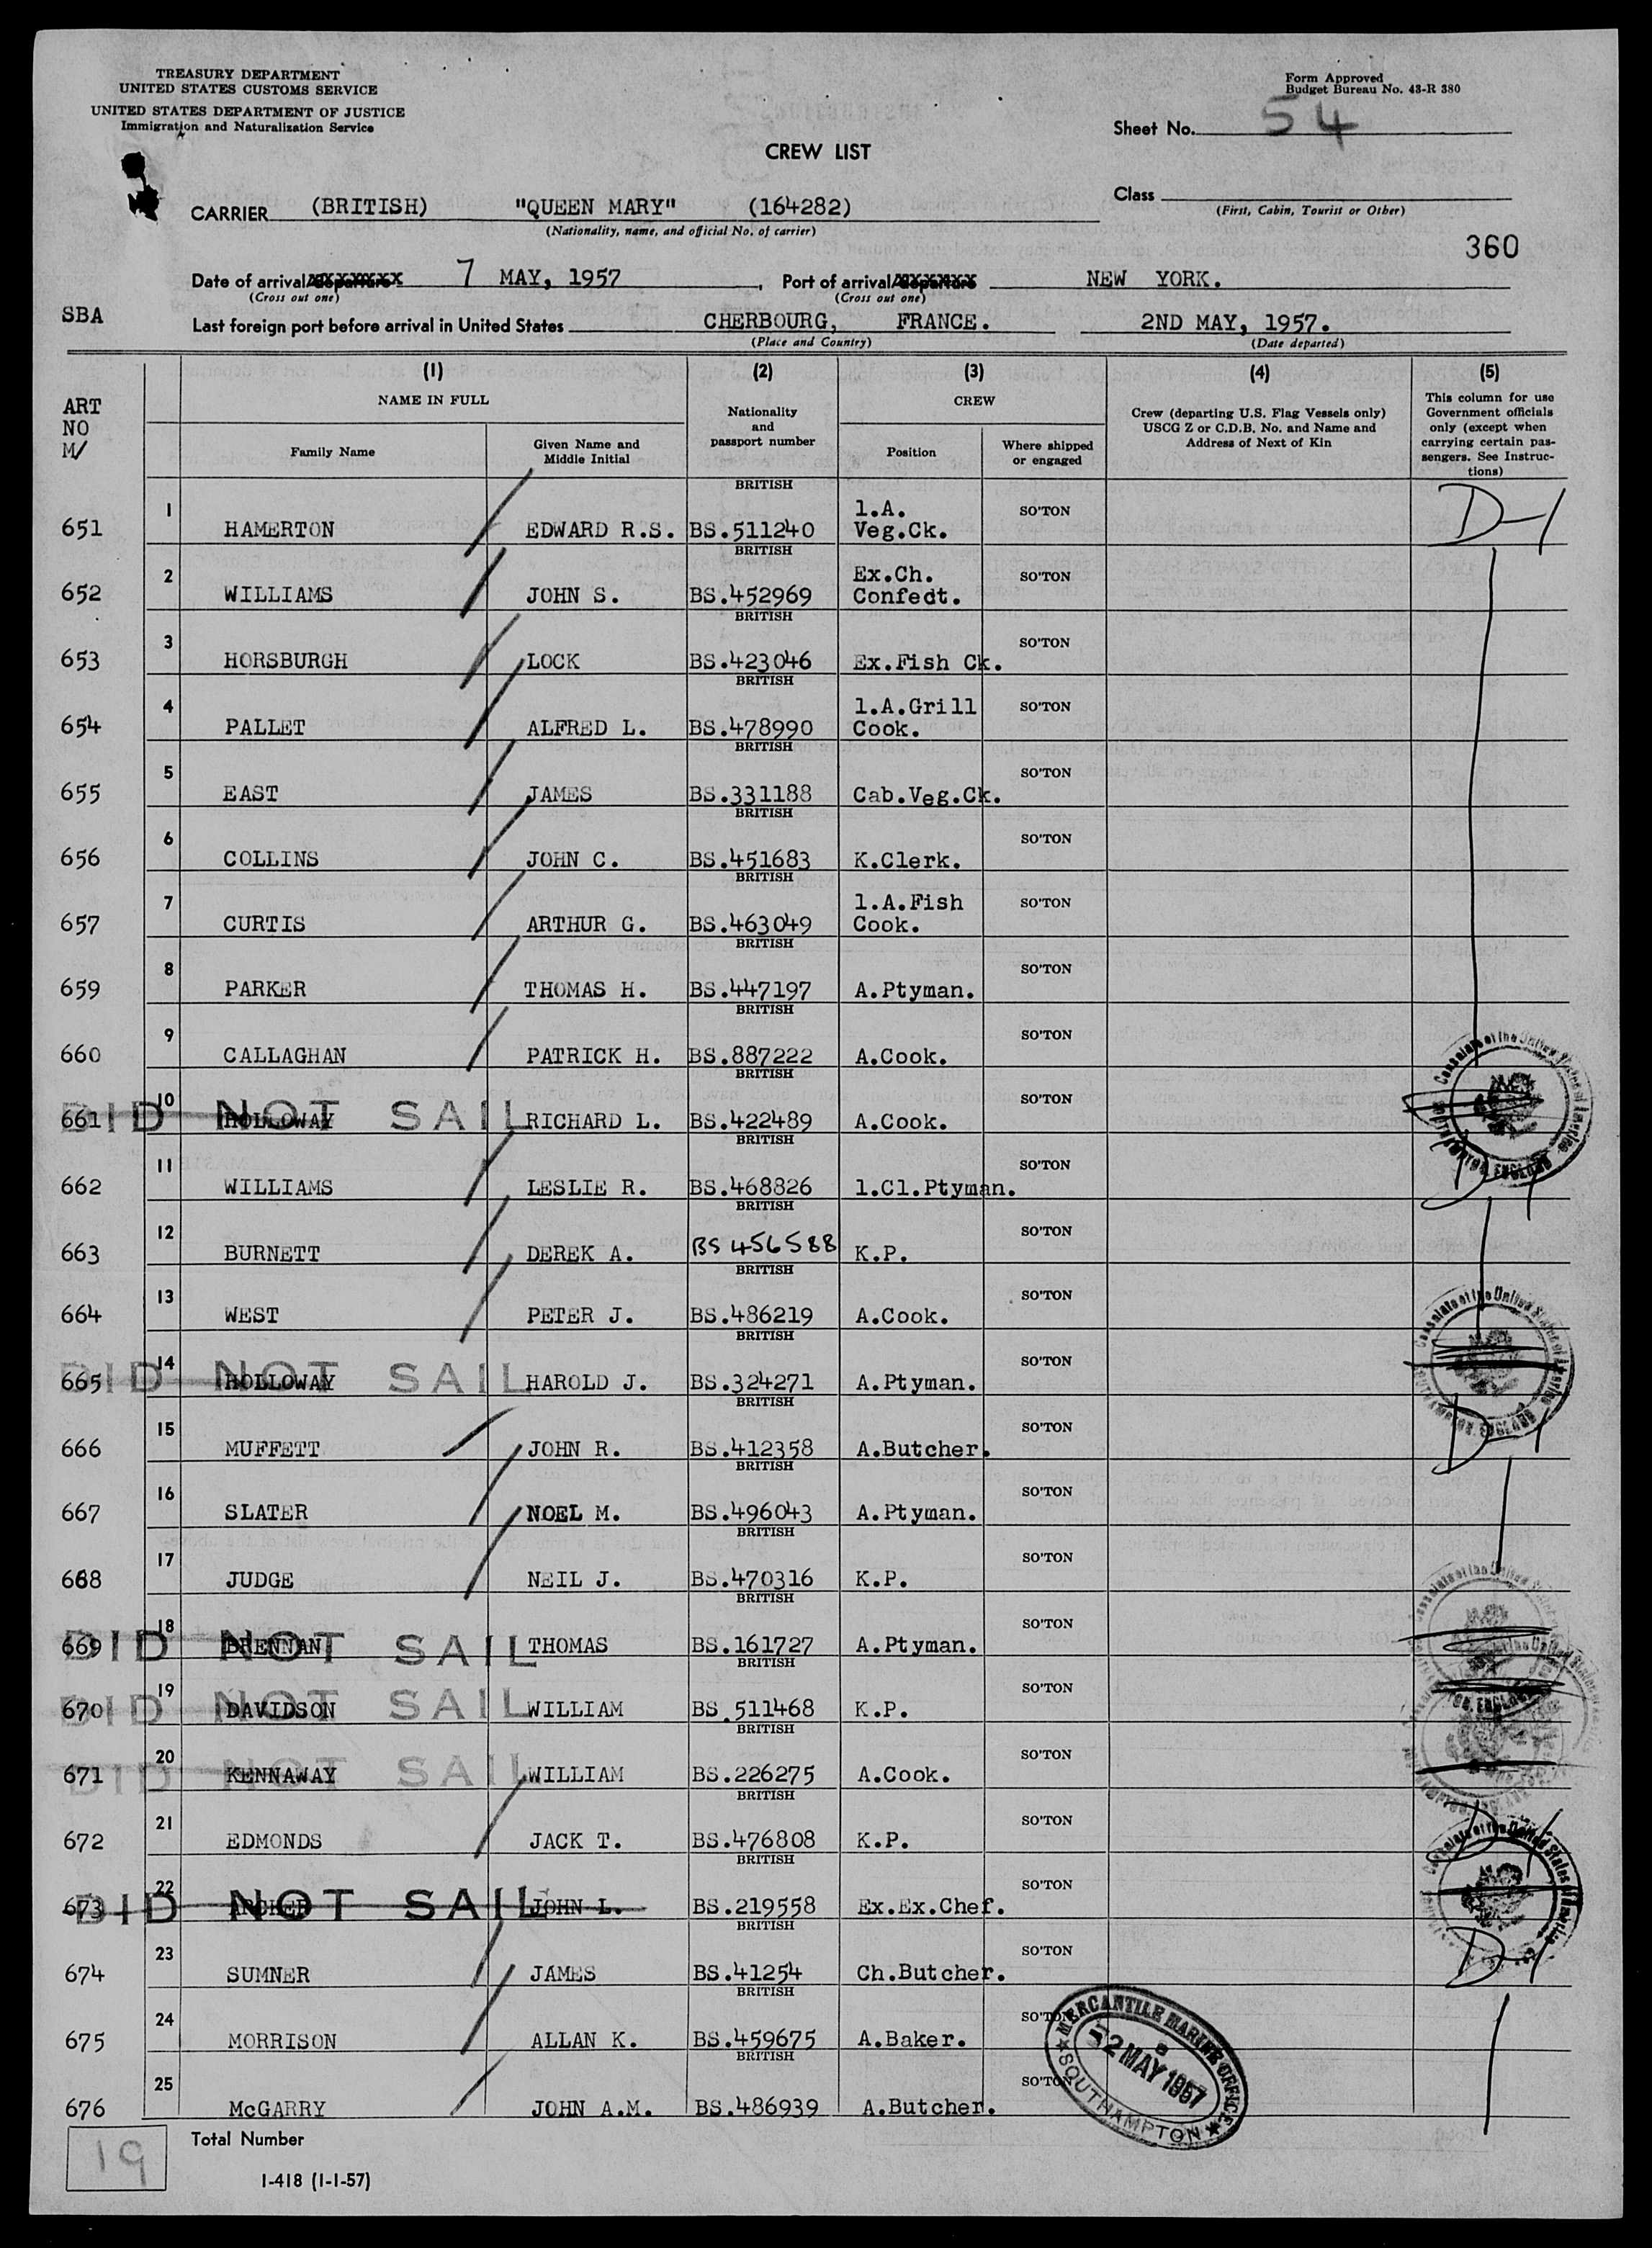 TREASURY DEPARTMENT
UNITED STATES CUSTOMS SERVICE
UNITED STATES DEPARTMENT OF JUSTICE
Immigration and Naturalization Service
Form Approved
Budget Bureau No. 43-R 380
Sheet No. 54
CREW LIST
Class
(First, Cabin, Tourist or Other)
CARRIER (BRITISH) "QUEEN MARY" (164282)
(Nationality, name, and official No. of carrier)
360
Date of arrival/departure 7 MAY, 1957, Port of arrival/departure NEW YORK.
(Cross out one) (Cross out one)
SBA
Last foreign port before arrival in United States CHERBOURG, FRANCE. 2ND MAY, 1957.
(Place and Country) (Date departed)
ART NO M/
(1) (2) (3) (4) (5)
NAME IN FULL
Family Name
Given Name and Middle Initial
Nationality and passport number
CREW
Position
Where shipped or engaged
Crew (departing U.S. Flag Vessels only) USCG Z or C.D.B. No. and Name and Address of Next of Kin
This column for use Government officials only (except when carrying certain passengers. See Instructions)
651 1 HAMERTON EDWARD R.S. BRITISH BS.511240 1.A. Veg.Ck. SO'TON D-1
652 2 WILLIAMS JOHN S. BRITISH BS.452969 Ex.Ch. Confedt. SO'TON
653 3 HORSBURGH LOCK BRITISH BS.423046 Ex.Fish Ck. SO'TON
654 4 PALLET ALFRED L. BRITISH BS.478990 1.A.Grill Cook. SO'TON
655 5 EAST JAMES BRITISH BS.331188 Cab.Veg.Ck. SO'TON
656 6 COLLINS JOHN C. BRITISH BS.451683 K.Clerk. SO'TON
657 7 CURTIS ARTHUR G. BRITISH BS.463049 1.A.Fish Cook. SO'TON
659 8 PARKER THOMAS H. BRITISH BS.447197 A.Ptyman. SO'TON
660 9 CALLAGHAN PATRICK H. BRITISH BS.887222 A.Cook. SO'TON
661 10 HOLLOWAY RICHARD L. BRITISH BS.422489 A.Cook. SO'TON
DID NOT SAIL
662 11 WILLIAMS LESLIE R. BRITISH BS.468826 1.Cl.Ptyman. SO'TON D-1
663 12 BURNETT DEREK A. BRITISH BS 456588 K.P. SO'TON
664 13 WEST PETER J. BRITISH BS.486219 A.Cook. SO'TON
665 14 HOLLOWAY HAROLD J. BRITISH BS.324271 A.Ptyman. SO'TON
DID NOT SAIL
666 15 MUFFETT JOHN R. BRITISH BS.412358 A.Butcher. SO'TON D-1
667 16 SLATER NOEL M. BRITISH BS.496043 A.Ptyman. SO'TON
668 17 JUDGE NEIL J. BRITISH BS.470316 K.P. SO'TON
669 18 BRENNAN THOMAS BRITISH BS.161727 A.Ptyman. SO'TON
DID NOT SAIL
670 19 DAVIDSON WILLIAM BRITISH BS.511468 K.P. SO'TON
DID NOT SAIL
671 20 KENNAWAY WILLIAM BRITISH BS.226275 A.Cook. SO'TON
DID NOT SAIL
672 21 EDMONDS JACK T. BRITISH BS.476808 K.P. SO'TON D-1
673 22 JOHN L. BRITISH BS.219558 Ex.Ex.Chef. SO'TON
DID NOT SAIL
674 23 SUMNER JAMES BRITISH BS.41254 Ch.Butcher. SO'TON D-1
675 24 MORRISON ALLAN K. BRITISH BS.459675 A.Baker. SO'TON
676 25 McGARRY JOHN A.M. BRITISH BS.486939 A.Butcher. SO'TON
Consulate of the United States of America SOUTHAMPTON, ENGLAND
MERCANTILE MARINE OFFICE
2 MAY 1957
SOUTHAMPTON
19 Total Number
I-418 (1-1-57)